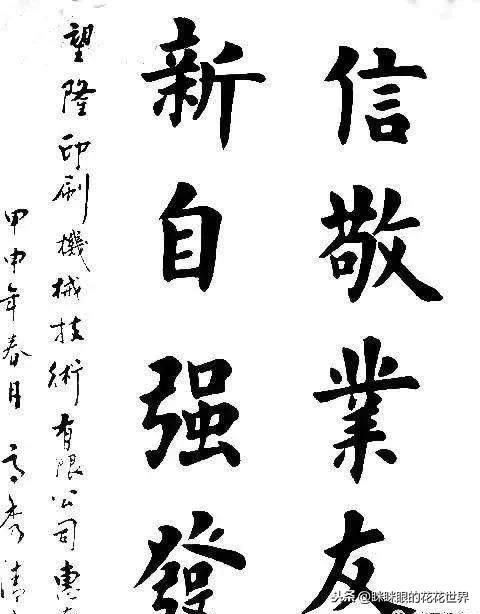 信敬業友
新自强發
望隆印刷機械技術有限公司惠存
甲申年春月 高秀清
头条 @眯眯眼的花花世界